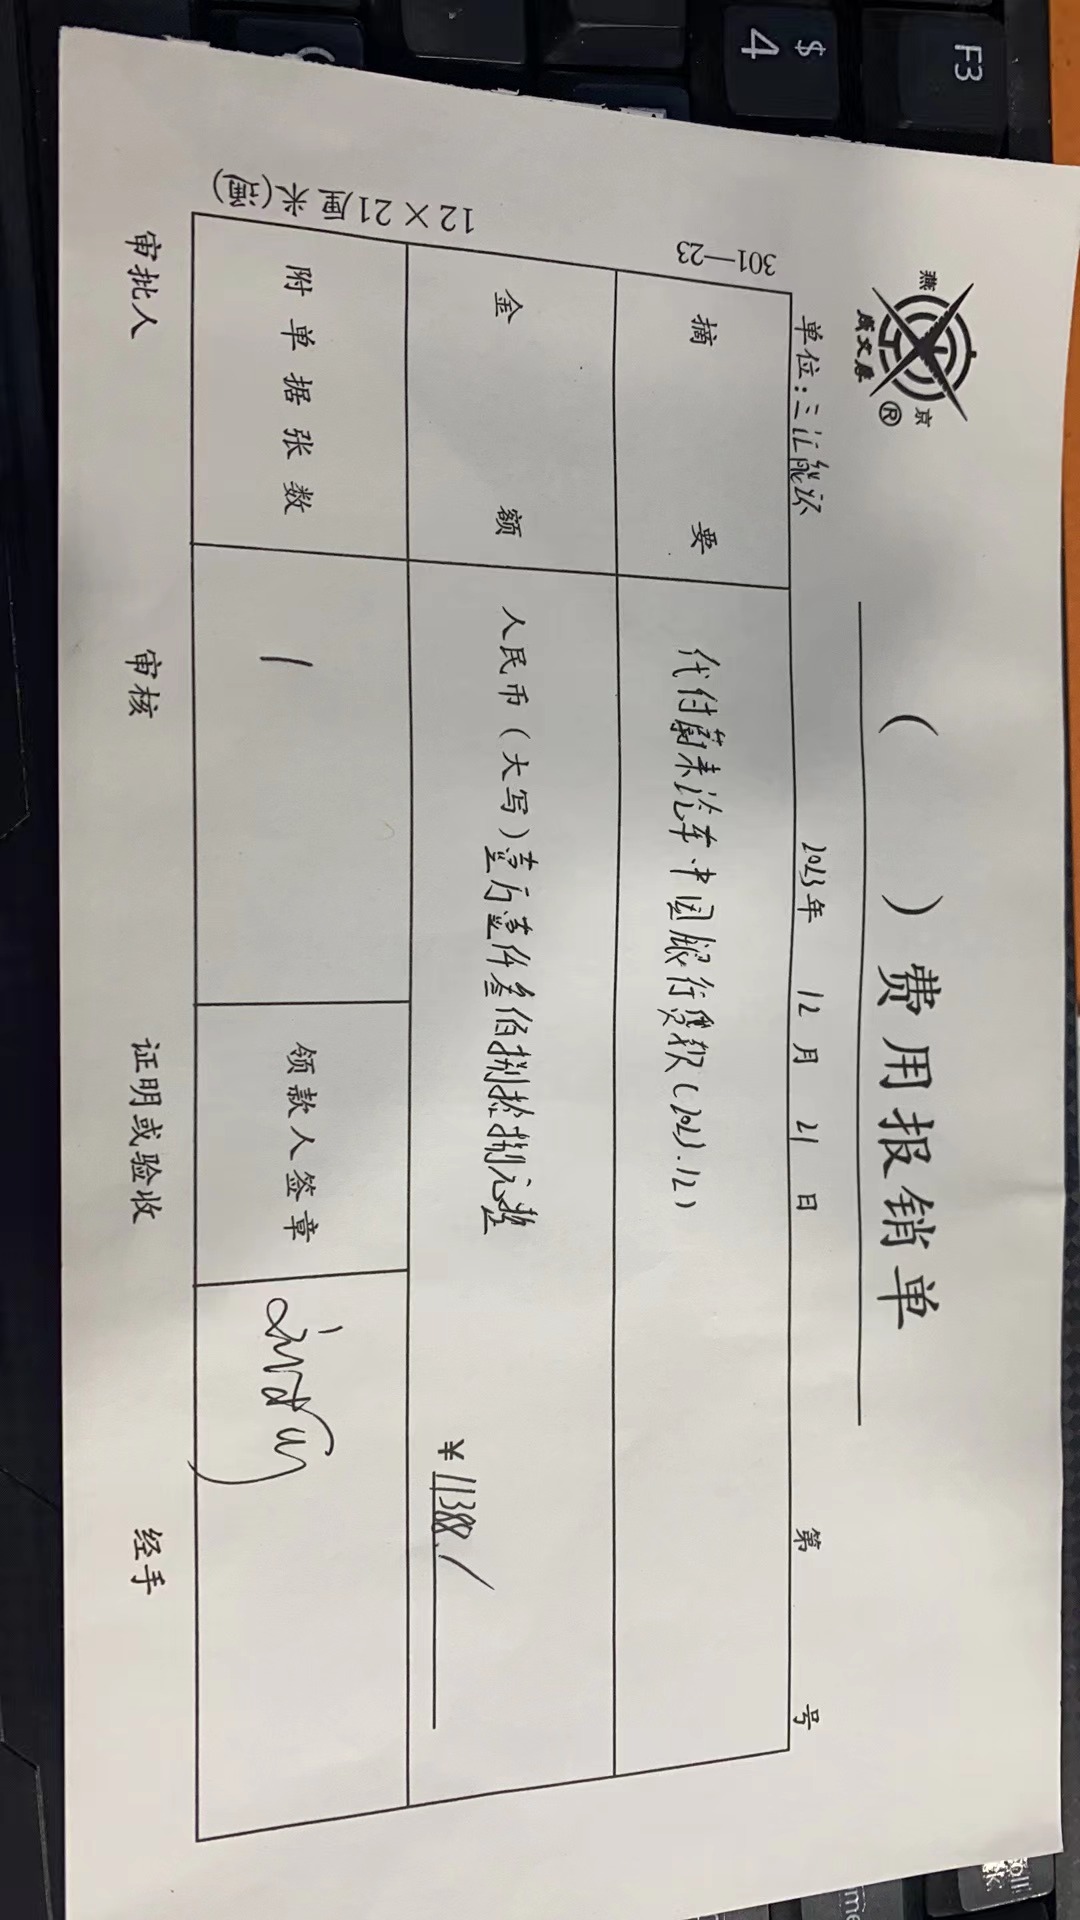 燕 京
成文厚
®
（ ）费用报销单
单位：三汇能环 2023年 12月 21日 第 号
301—23
摘要 代付蔚来汽车中国银行贷款(2023.12)
金额 人民币（大写）壹万壹仟叁佰捌拾捌元整
¥11388./
附单据张数 1 领款人签章
12×21厘米(通)
审批人 审核 证明或验收 经手
F3
$
4